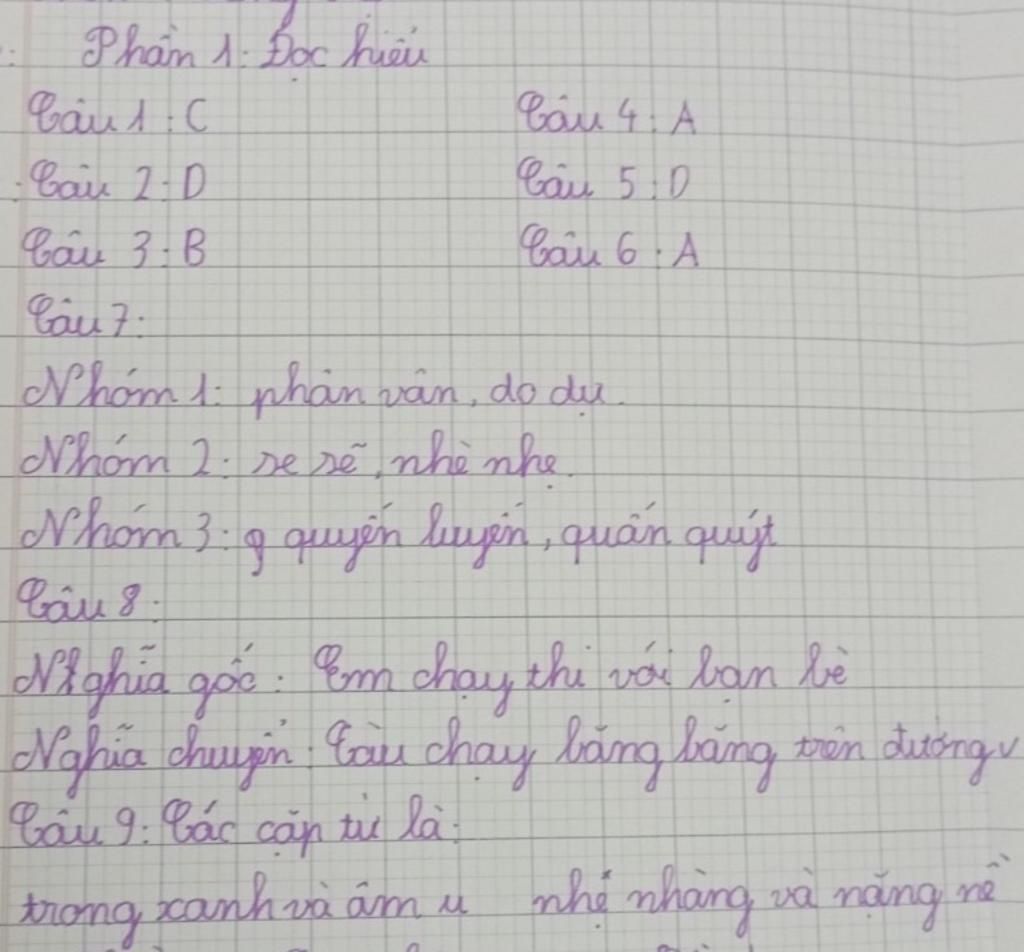 Phần 1: Đọc hiểu
Câu 1: C
Câu 4: A
Câu 2: D
Câu 5: D
Câu 3: B
Câu 6: A
Câu 7:
Nhóm 1: phân vân, do dự.
Nhóm 2: se sẽ, nhè nhẹ.
Nhóm 3: q quyến luyến, quấn quýt
Câu 8:
Nghĩa gốc: Em chạy thi với bạn bè
Nghĩa chuyển: Tàu chạy băng băng trên đường
Câu 9: Các cặp từ là:
trong xanh và âm u nhẹ nhàng và nặng nề